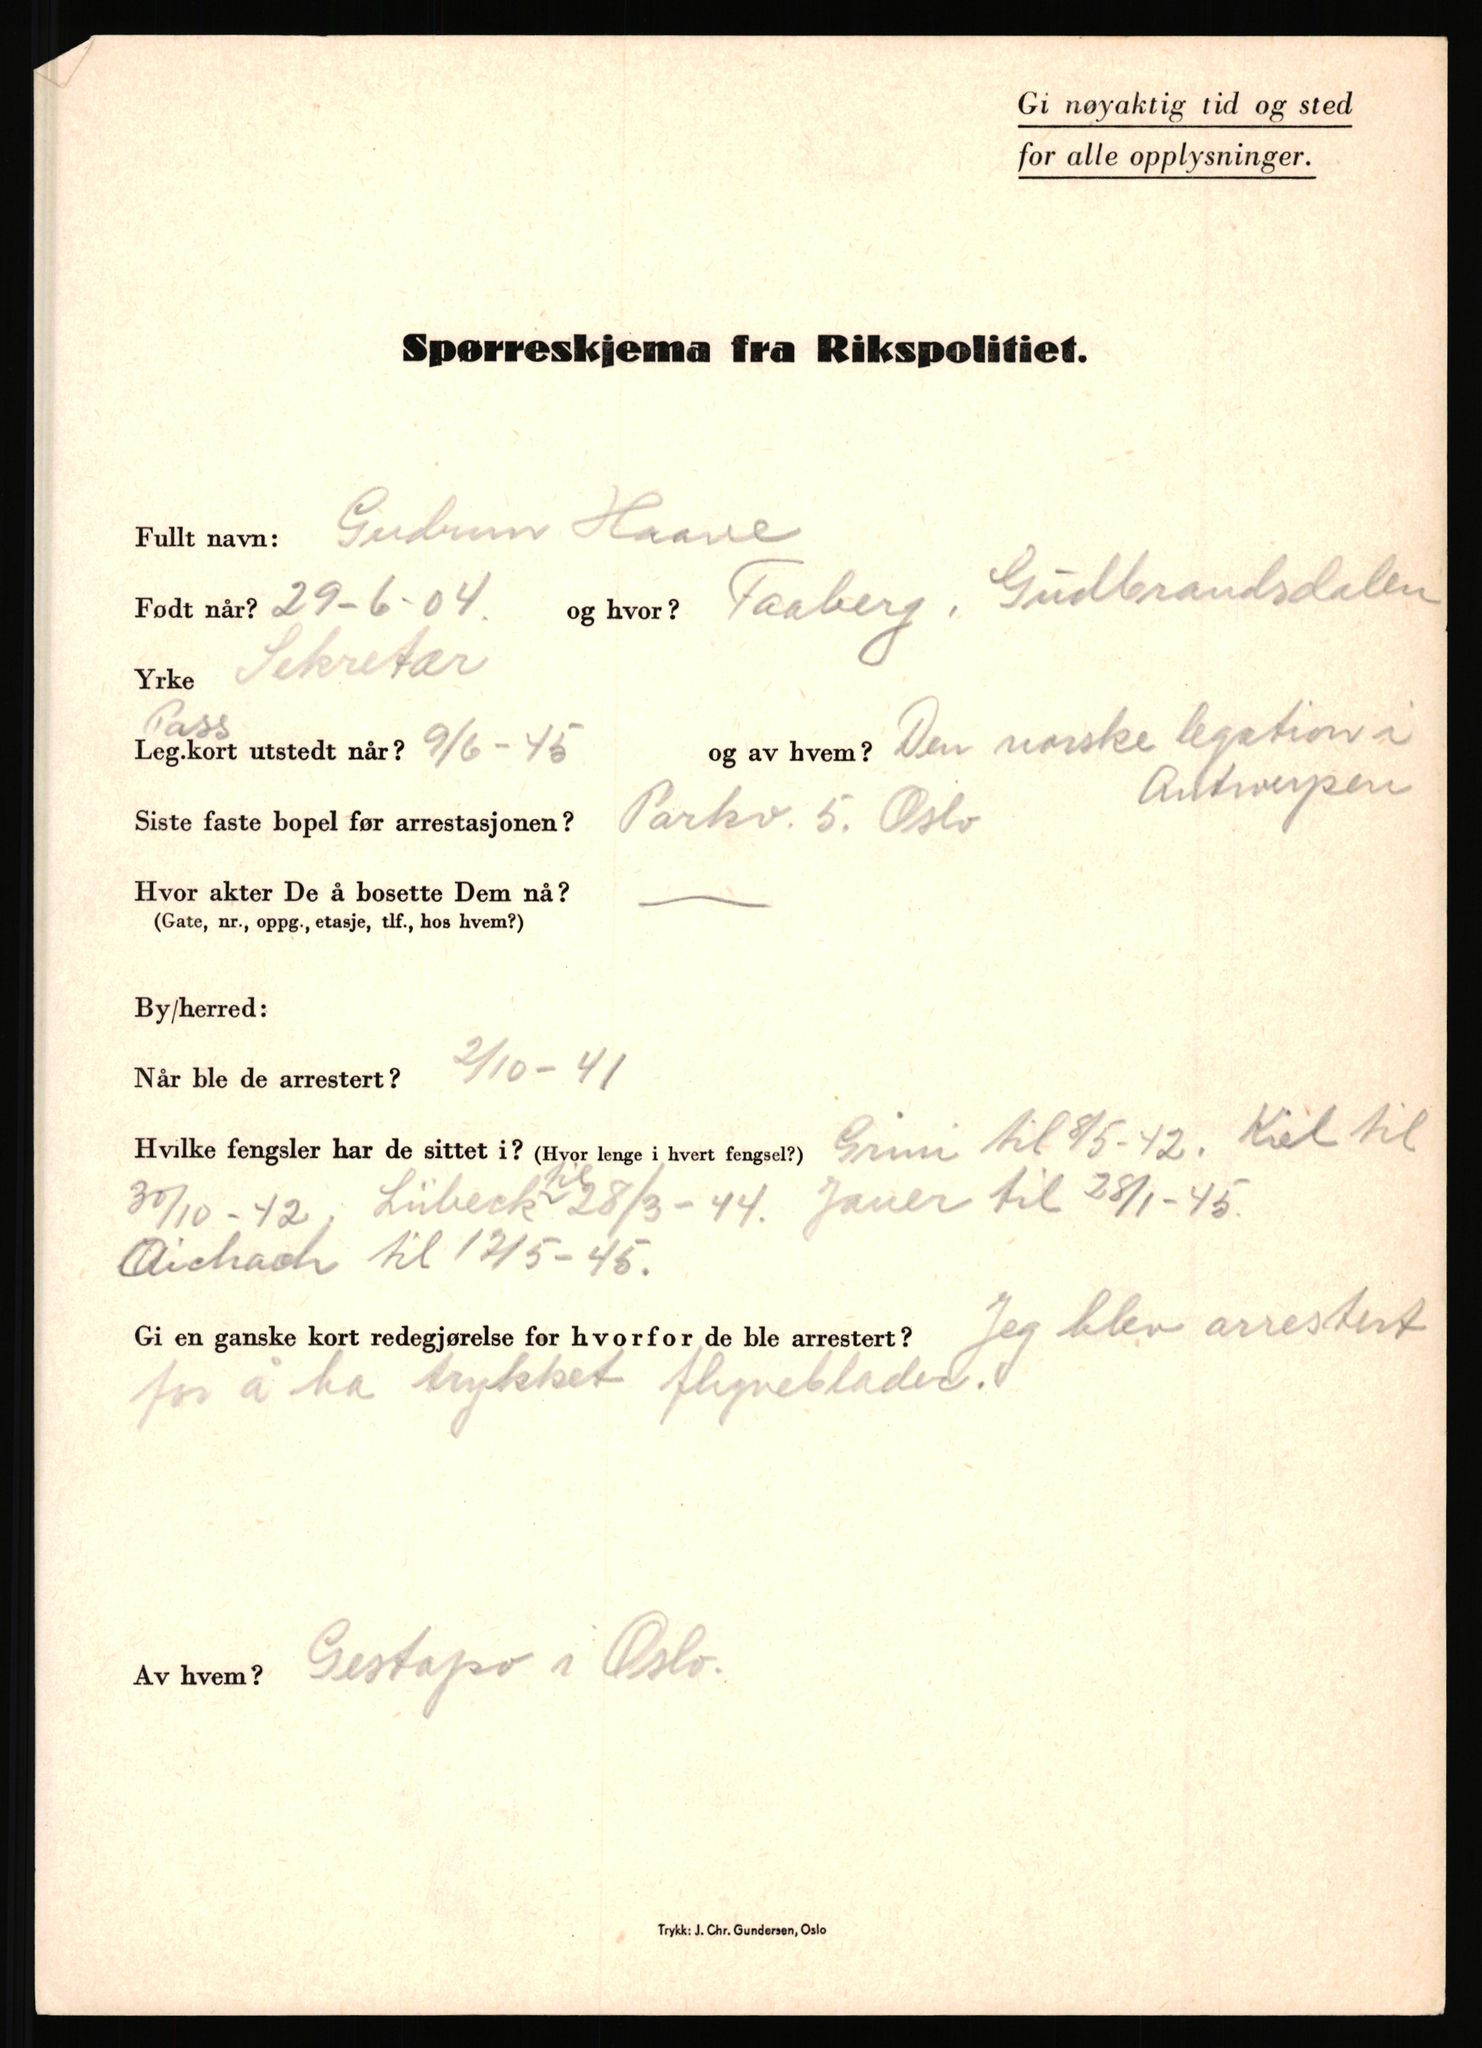 Gi nøyaktig tid og sted
for alle opplysninger.
Spørreskjema fra Rikspolitiet.
Fullt navn: Gudrun Haave
Født når? 29-6-04. og hvor? Faaberg, Gudbrandsdalen
Yrke Sekretær
Pass
Leg.kort utstedt når? 9/6-45 og av hvem? Den norske legation i
Antwerpen
Siste faste bopel før arrestasjonen? Parkv. 5. Oslo
Hvor akter De å bosette Dem nå? —
(Gate, nr., oppg., etasje, tlf., hos hvem?)
By/herred:
Når ble de arrestert? 2/10-41
Hvilke fengsler har de sittet i? (Hvor lenge i hvert fengsel?) Grini til 8/5-42. Kiel til
30/10-42. Lübeck til 28/3-44. Jauer til 28/1-45.
Aichach til 12/5-45.
Gi en ganske kort redegjørelse for hvorfor de ble arrestert? Jeg blev arrestert
for å ha trykket flyveblader.
Av hvem? Gestapo i Oslo.
Trykk: J. Chr. Gundersen, Oslo